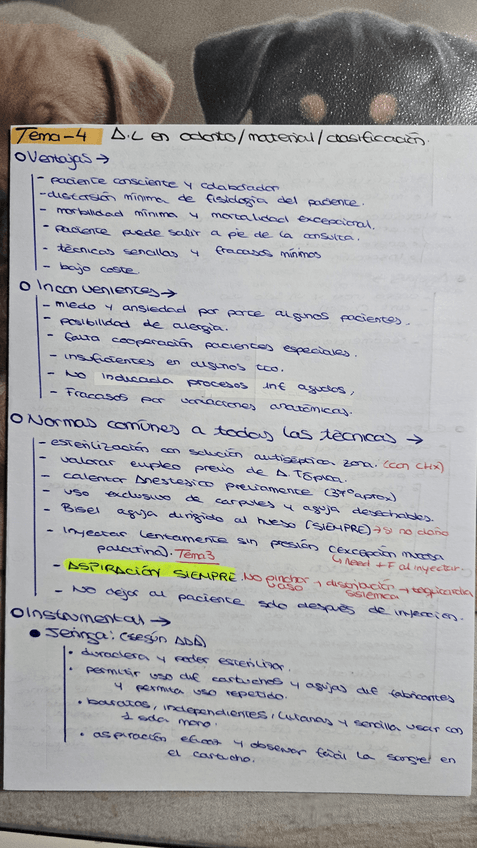 Tema-4 A.L en odonto/material/clasificación.
Ventajas →
- paciente consciente y colaborador
- distorsión mínima de fisiología del paciente.
- morbilidad mínima y mortalidad excepcional.
- paciente puede salir a pie de la consulta.
- técnicas sencillas y fracasos mínimos
- bajo coste.
Inconvenientes →
- miedo y ansiedad por parte algunos pacientes.
- posibilidad de alergia.
- falta cooperación pacientes especiales.
- insuficientes en algunos tto.
- No indicada procesos inf agudos,
- Fracasos por variaciones anatómicas.
Normas comunes a todas las técnicas →
- esterilización con solución antiséptica zona. (con CHX)
- valorar empleo previo de A. Tópica.
- calentar Anestésico previamente (37º aprox)
- uso exclusivo de carpules y aguja desechables.
- Bisel aguja dirigido al hueso (SIEMPRE) → si no daño
- Inyectar lentamente sin presión (excepción mucosa
palatina). Tema 3 need + F al inyectar.
- ASPIRACIÓN SIEMPRE No pinchar vaso → sistémica
- No dejar al paciente solo después de inyección.
Instrumental →
Jeringa: (según ADA)
• duradera y poder esterilizar.
• permitir uso dif cartuchos y agujas dif fabricantes
y permita uso repetido.
• baratos, independientes, livianas y sencilla usar con
1 sola mano.
• aspiración eficaz y observar fácil la sangre en
el cartucho.